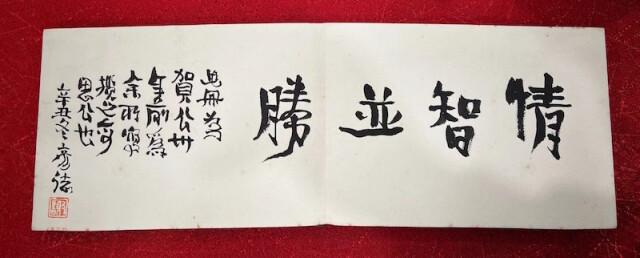 情智並勝
此冊為
賀公卅
年前為
余所
之可
思公也
辛丑冬